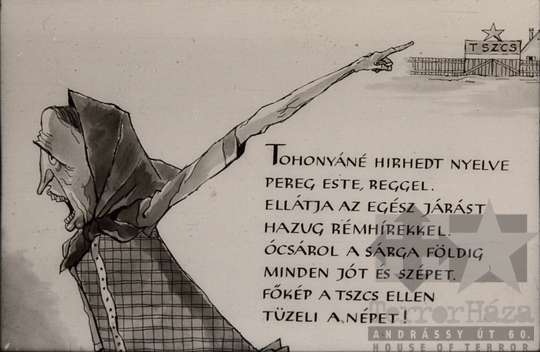 TSZCS
TOHONYÁNÉ HIRHEDT NYELVE
PEREG ESTE, REGGEL.
ELLÁTJA AZ EGÉSZ JÁRÁST
HAZUG RÉMHÍREKKEL.
ÓCSÁROL A SÁRGA FÖLDIG
MINDEN JÓT ÉS SZÉPET.
FŐKÉP A TSZCS ELLEN
TÜZELI A NÉPET!
TerrorHáza
ANDRÁSSY ÚT 60.
HOUSE OF TERROR